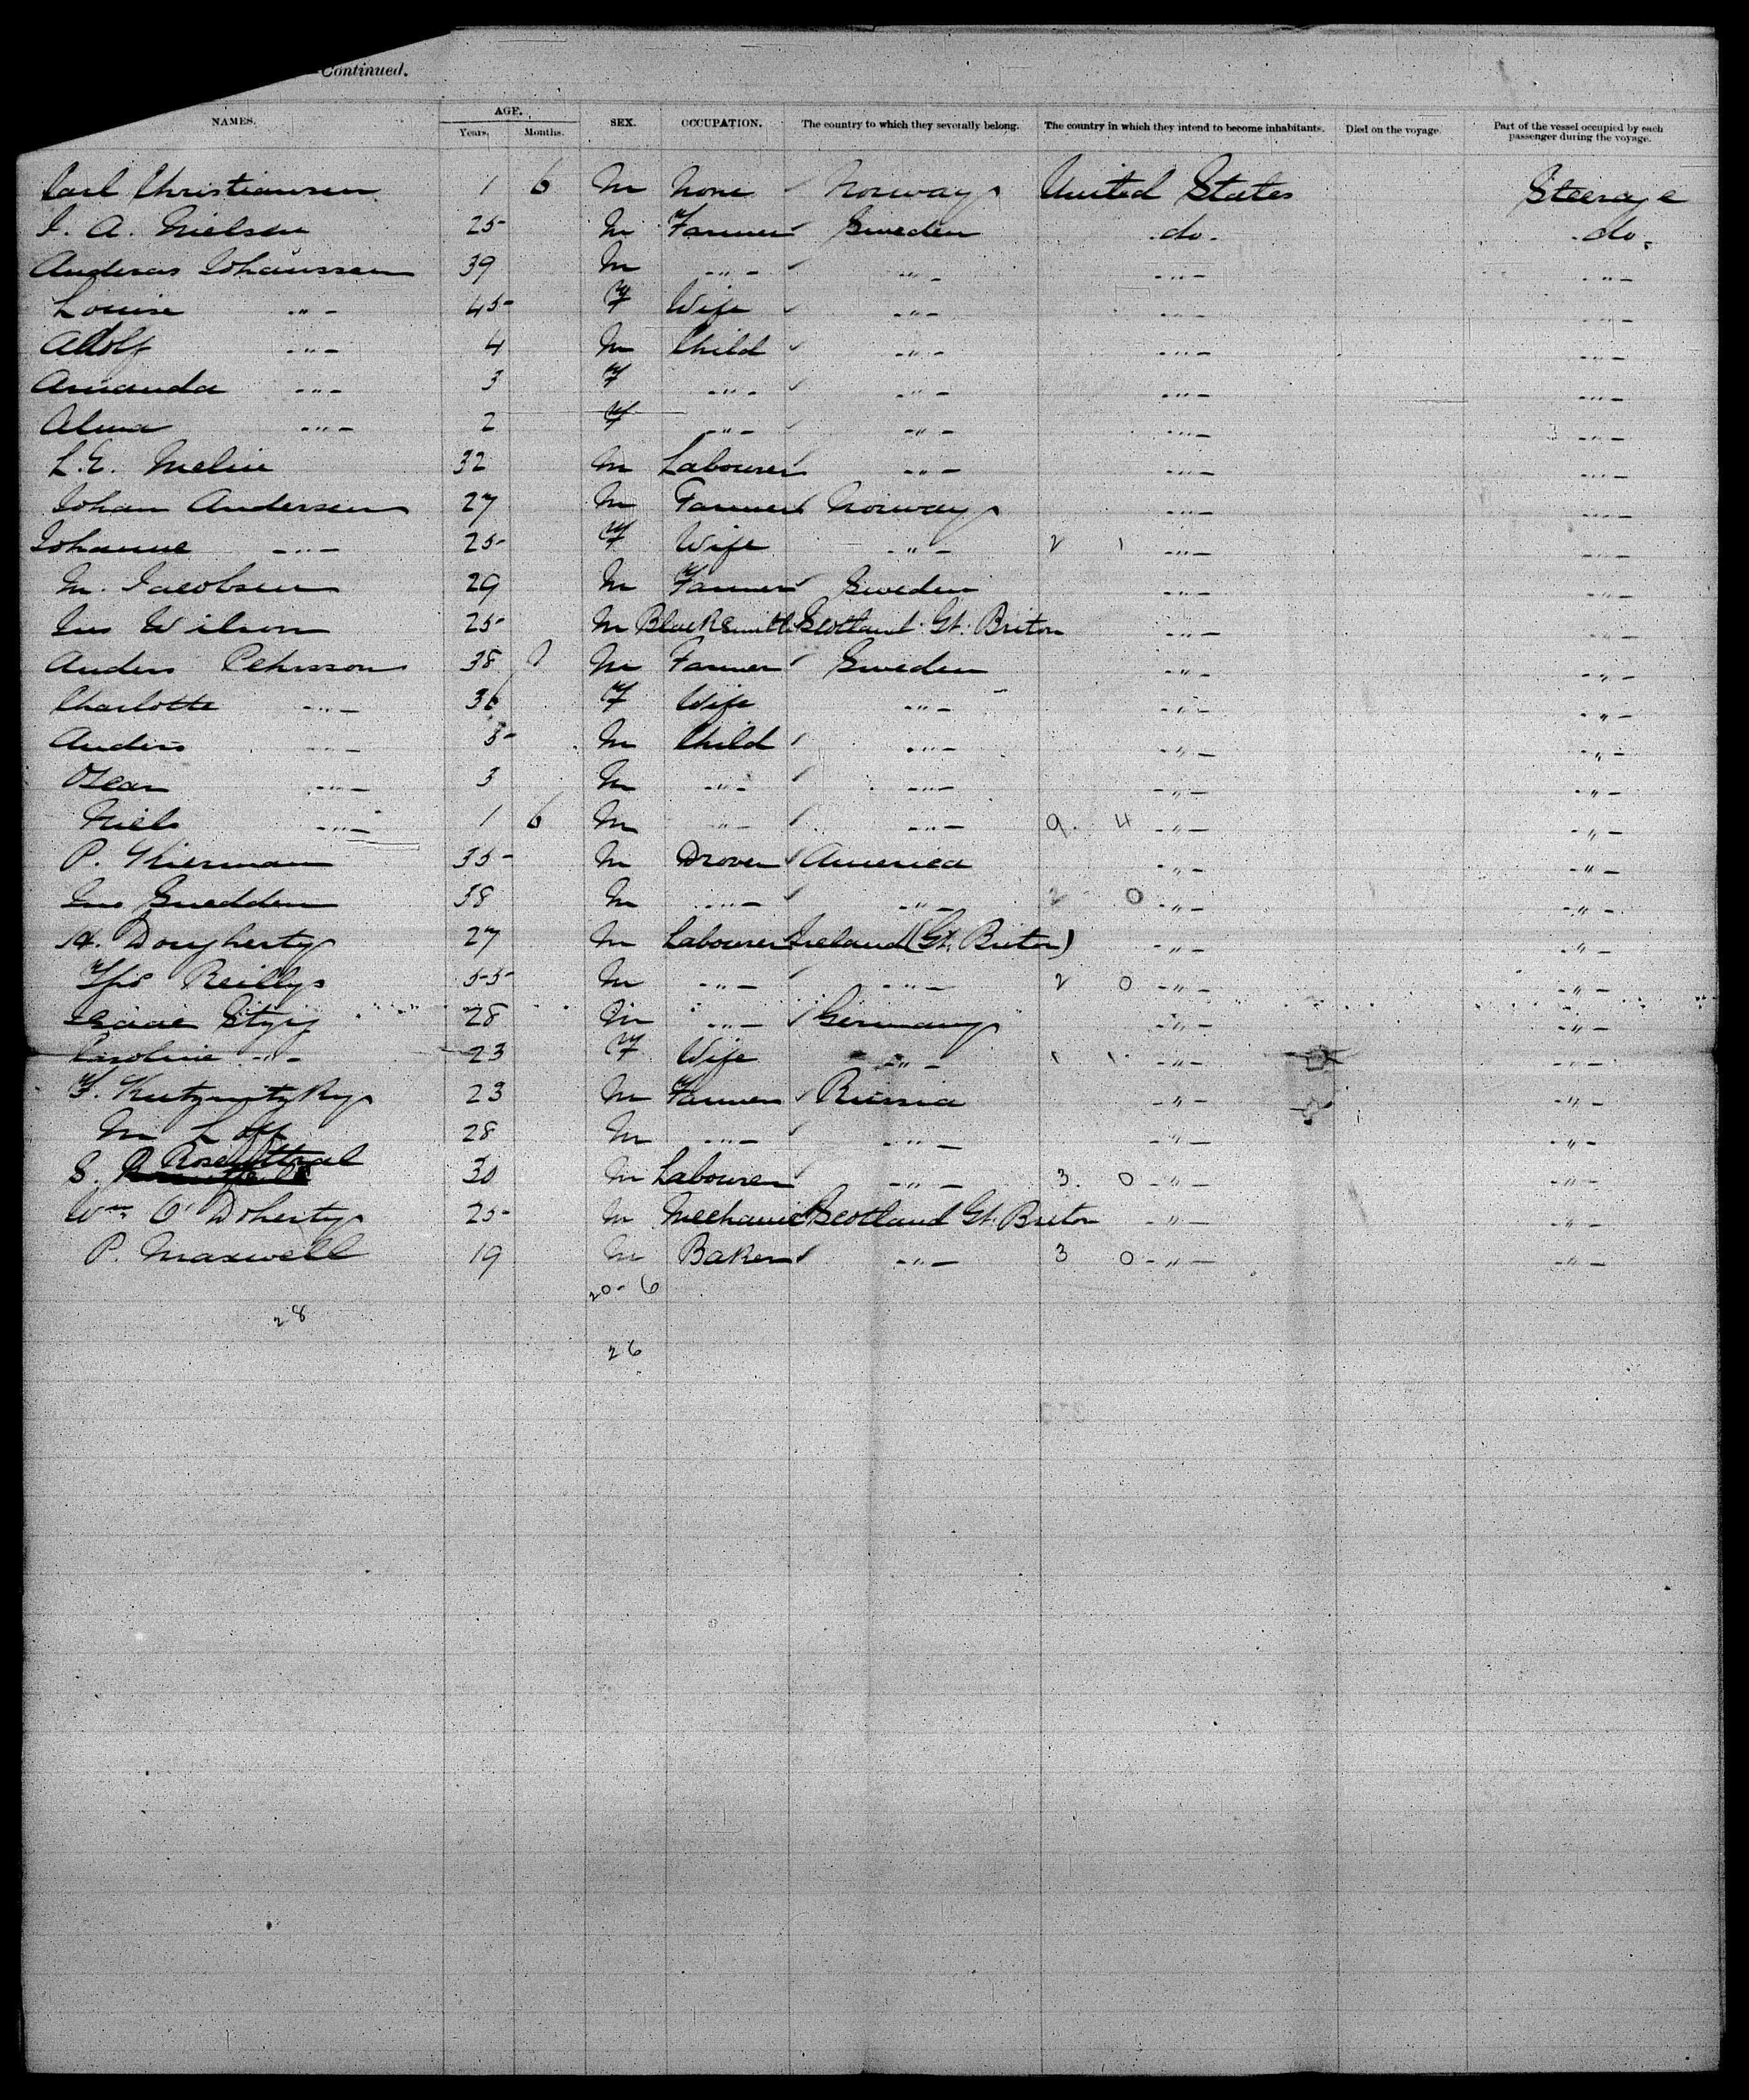 Continued.
NAMES. AGE. Years. Months. SEX. OCCUPATION. The country to which they severally belong. The country in which they intend to become inhabitants. Died on the voyage. Part of the vessel occupied by each passenger during the voyage.
Carl Christiansen 1 6 M None Norway United States Steerage
I. A. Nielsen 25 M Farmer Sweden do. do.
Anderas Johanssen 39 M " " " "
Louise " 45 F Wife " " "
Adolf " 4 M Child " " "
Amanda " 3 F " " " "
Alma " 2 F " " " "
L. E. Melin 32 M Labourer " " "
Johan Andersen 27 M Farmer Norway " "
Johanne " 25 F Wife " 2 1 " "
M. Jacobsen 29 M Farmer Sweden " "
Jas Wilson 25 M Blacksmith Scotland Gt. Briton " "
Anders Pehrsson 38 M Farmer Sweden " "
Charlotte " 36 F Wife " " "
Anders " 5 M Child " " "
Oscar " 3 M " " " "
Niels " 1 6 M " " 9. 4 " "
P. Thierman 35 M Drover America " "
Jno Snedden 38 M " " 2 0 " "
H. Dougherty 27 M Labourer Ireland (Gt. Briton) " "
Thos Reilly 55 M " " 2 0 " "
Isaac 28 M " Germany " "
Caroline " 23 F Wife " 1 1 " "
F. 23 M Farmer Russia " "
M 28 M " " " "
S. Rosenthal 30 M Labourer " 3. 0 " "
Wm O'Doherty 25 M Mechanic Scotland Gt. Briton " "
P. Maxwell 19 M Baker " 3 0 " "
20 - 6
28
26